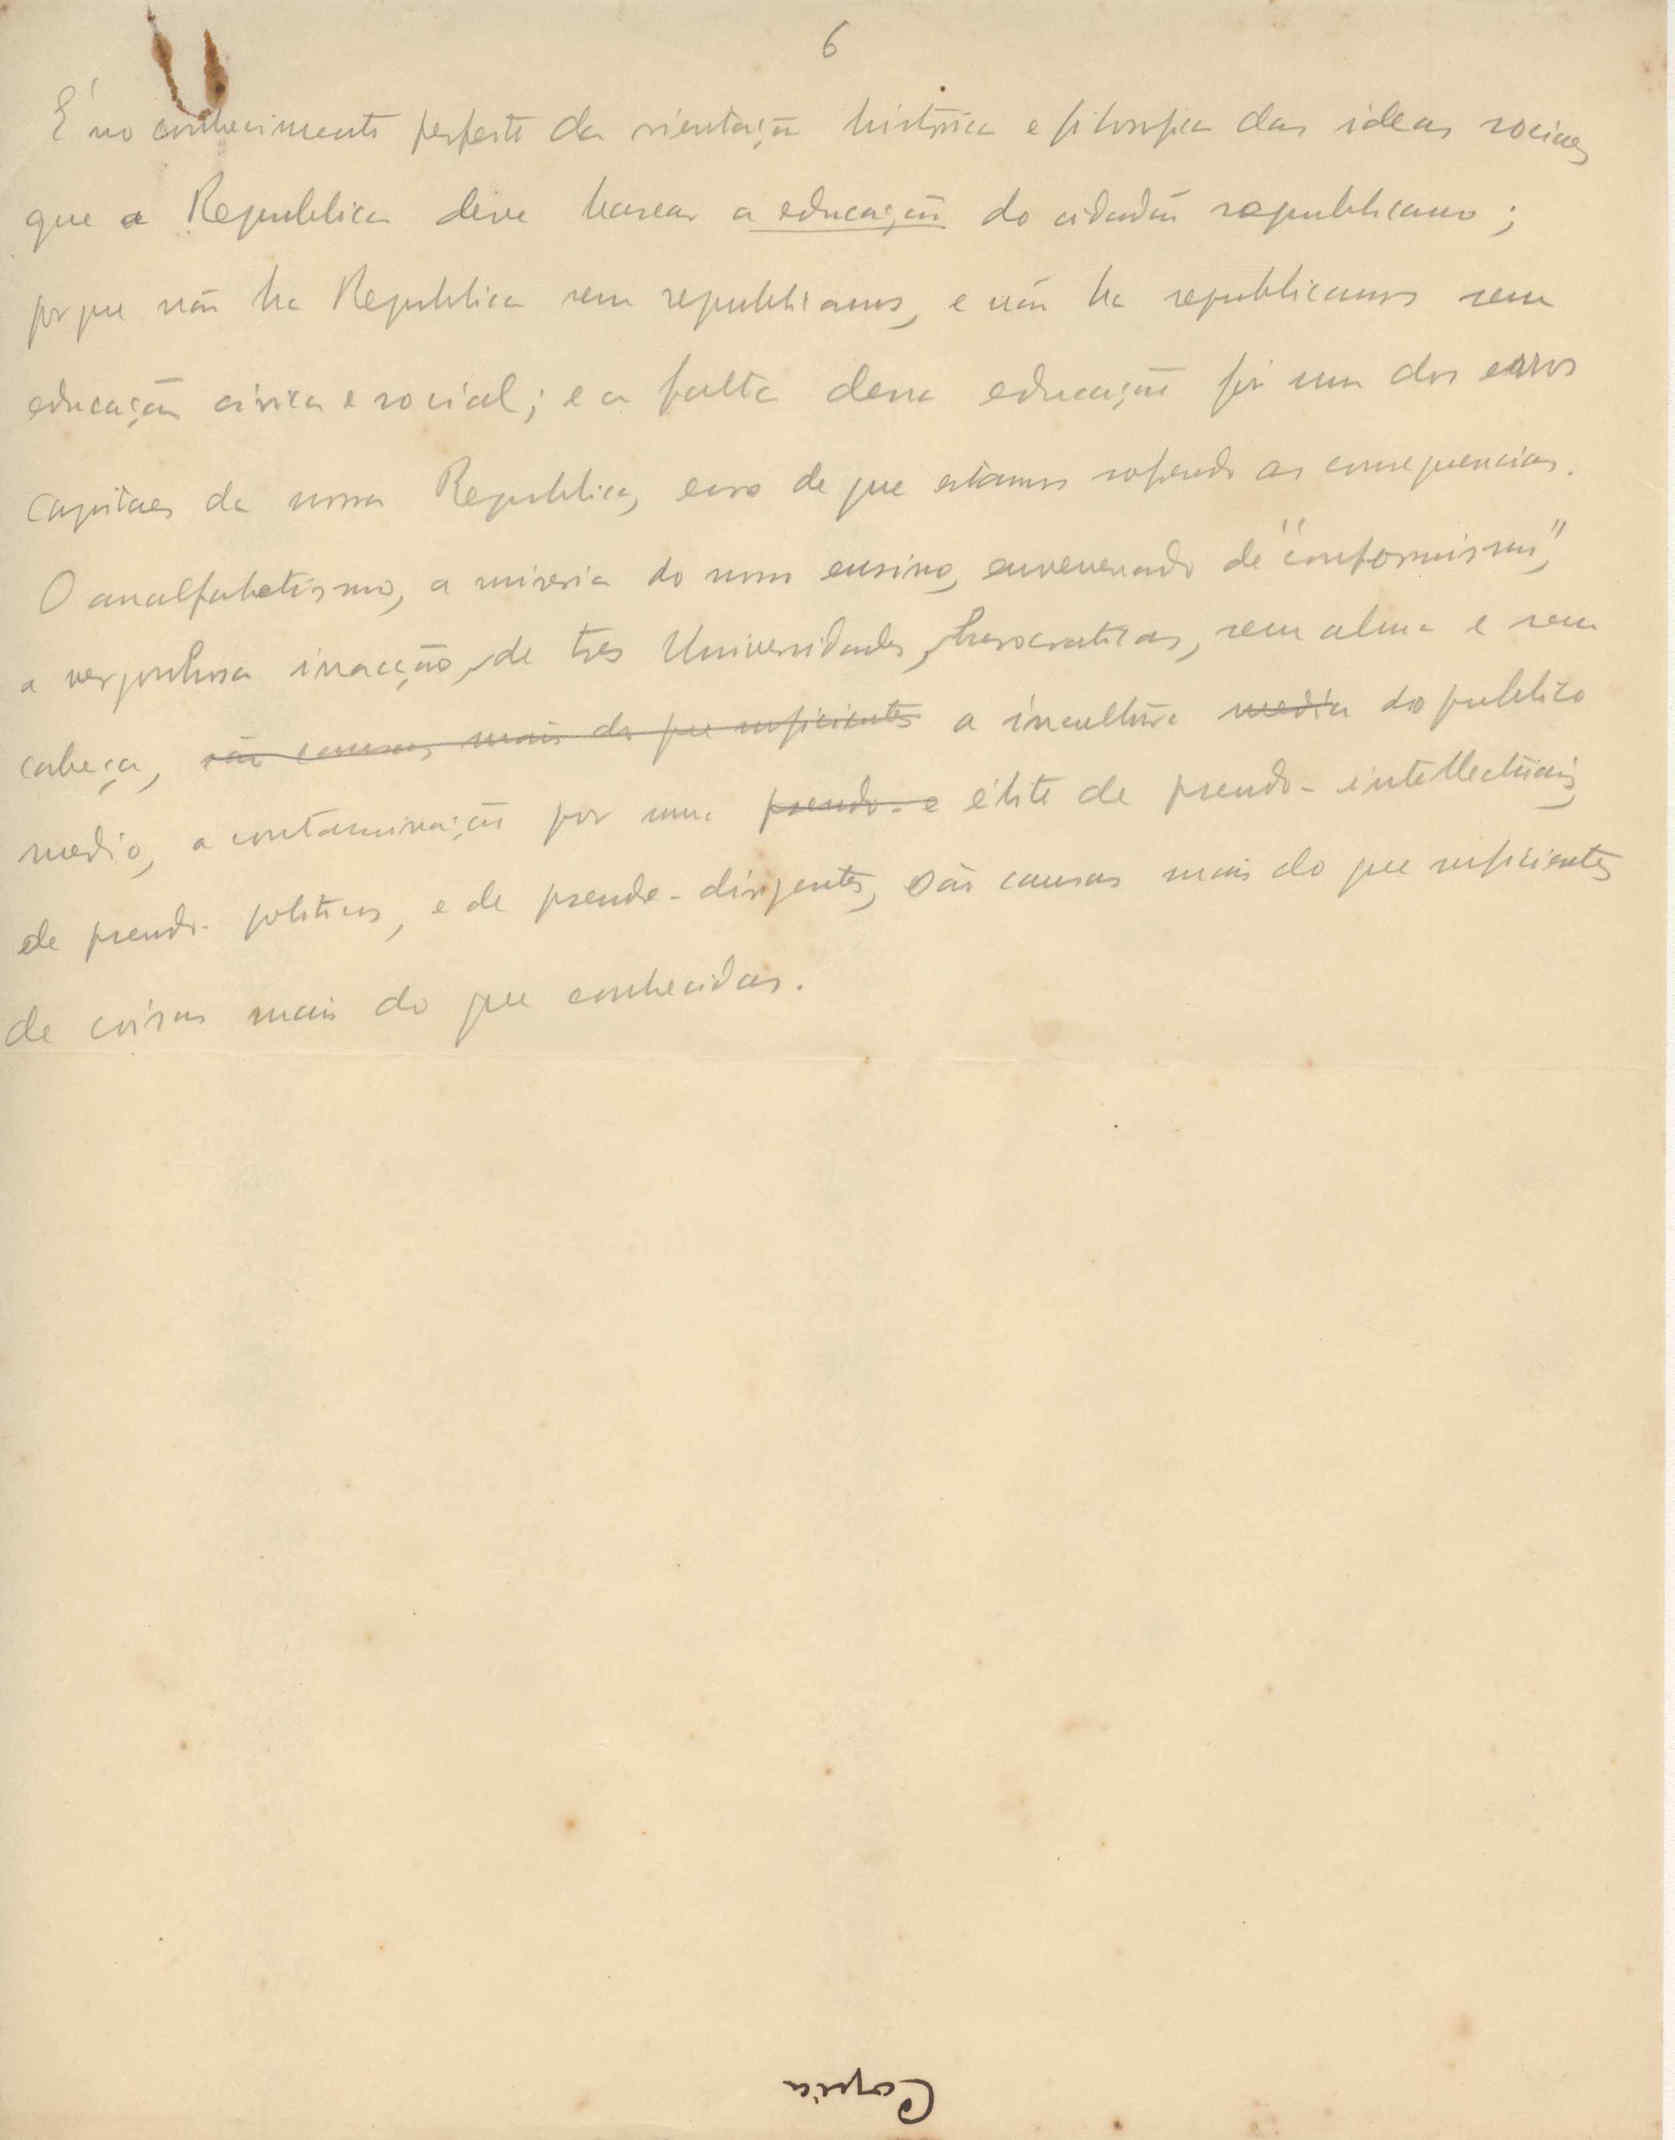 6
É no conhecimento perfeito da orientação historica e filosofica das ideas sociaes
que a Republica deve basear a educação do cidadão republicano;
porque não ha Republica sem republicanos, e não ha republicanos sem
educação civica e social; e a falta dessa educação foi um dos erros
capitaes da nossa Republica, erro de que estamos sofrendo as consequencias.
O analfabetismo, a miseria do nosso ensino, envenenado de "conformismo",
a vergonhosa inacção de tres Universidades, burocraticas, sem alma e sem
cabeça, são causas mais do que suficientes a incultura media do publico
medio, a contaminação por uma pseudo-e élite de pseudo-intellectuais,
de pseudo-politicos, e de pseudo-dirigentes, são causas mais do que suficientes
de coisas mais do que conhecidas.
Copia